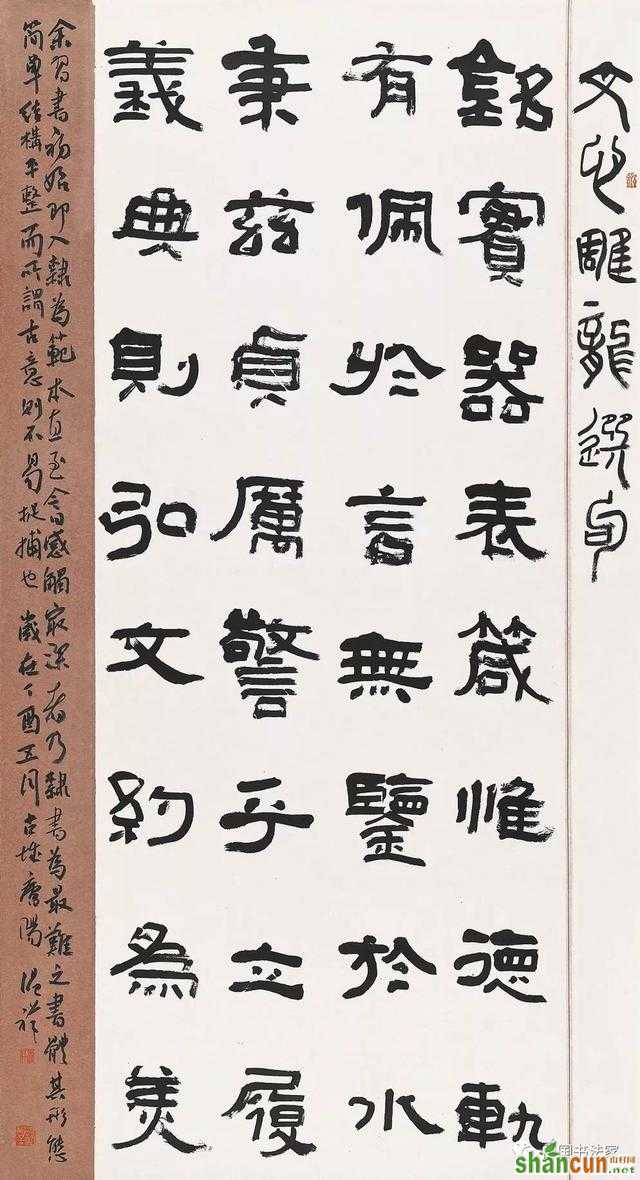 文心雕龍選句
銘實器表箴惟德軌
有佩於言無鑒於水
秉茲貞厲警乎立履
義典則弘文約為美
余習書初始即入隸為範本直至今日感觸最深者乃隸書為最難之書體其形態
簡單結構平整而所謂古意則不易捉捕也歲在丁酉五月古城
国书法家
shancun
山村网
.net